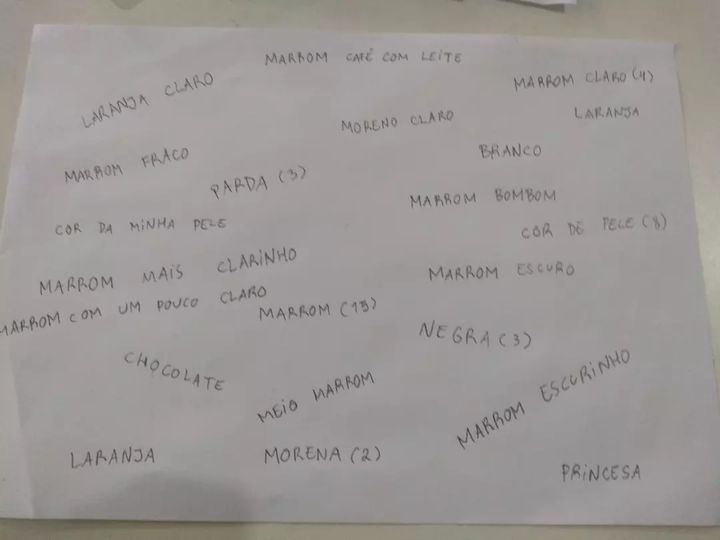 MARROM CAFÉ COM LEITE
LARANJA CLARO
MARROM CLARO (4)
MORENO CLARO
LARANJA
MARROM FRACO
BRANCO
PARDA (3)
MARROM BOMBOM
COR DA MINHA PELE
COR DE PELE (8)
MARROM MAIS CLARINHO
MARROM ESCURO
MARROM COM UM POUCO CLARO
MARROM (15)
NEGRA (3)
CHOCOLATE
MEIO MARROM
MARROM ESCURINHO
LARANJA
MORENA (2)
PRINCESA